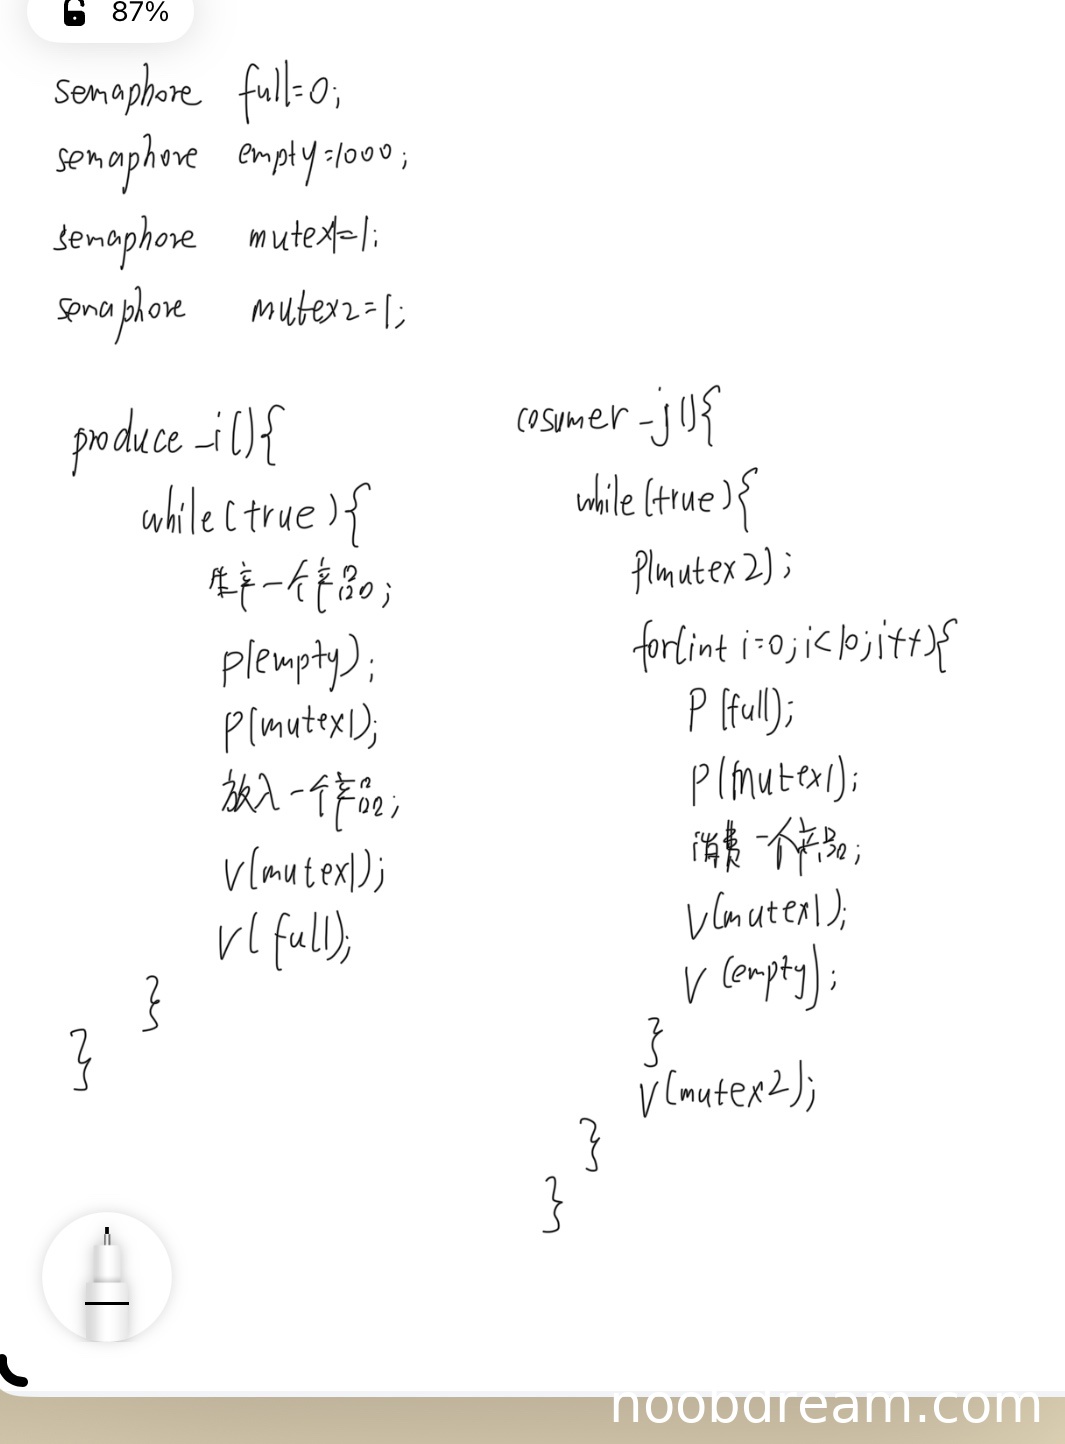 87%
semaphore full=0;
semaphore empty=1000;
semaphore mutex1=1;
semaphore mutex2=1;
produce_i(){
while(true){
生产一个产品;
P(empty);
P(mutex1);
放入一个产品;
V(mutex1);
V(full);
}
}
cosumer_j(){
while(true){
P(mutex2);
for(int i=0;i<10;i++){
P(full);
P(mutex1);
消费一个产品;
V(mutex1);
V(empty);
}
V(mutex2);
}
}
noobdream.com